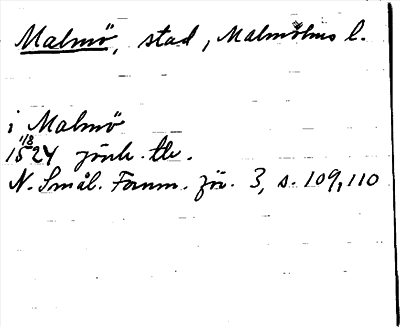 Malmö, stad, Malmöhus l.
i Malmö
1/8
1524 jönk. tb.
N. Smål. Fornm. för. 3, s. 109, 110